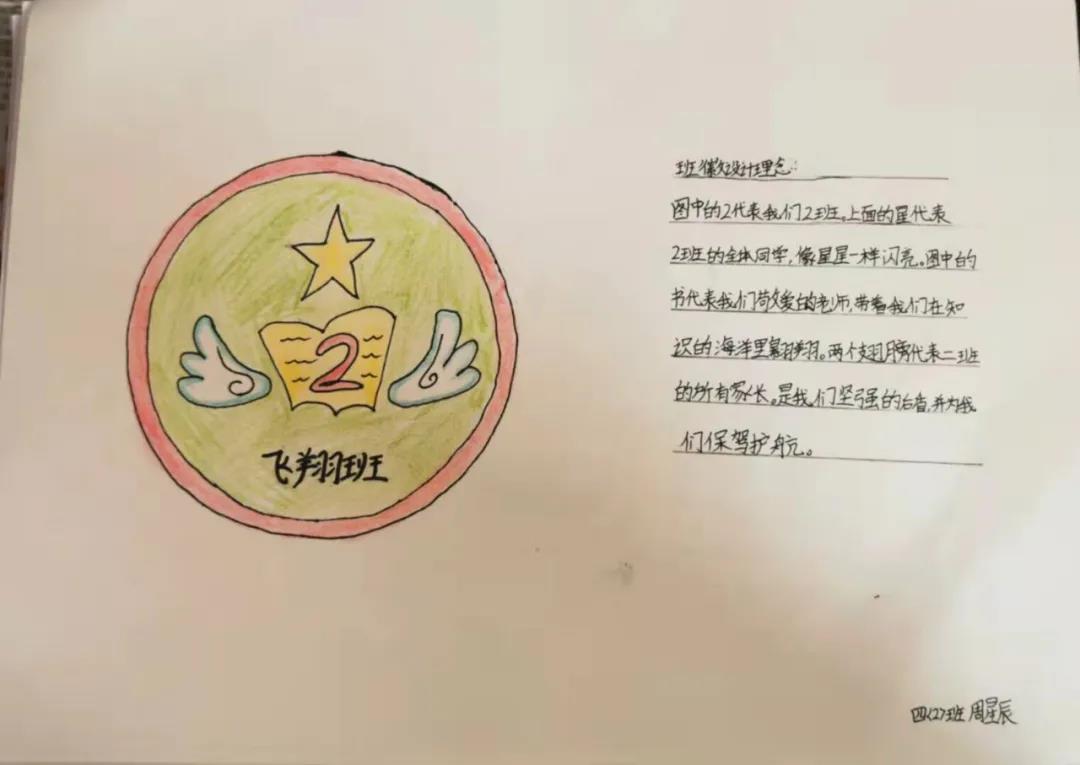 2
飞翔班
班徽设计理念:
图中的2代表我们2班。上面的星代表
2班的全体同学,像星星一样闪亮。图中的
书代表我们敬爱的老师,带着我们在知
识的海洋里翱翔。两个翅膀代表二班
的所有家长。是我们坚强的后盾,并为我
们保驾护航。
四(2)班 周星辰